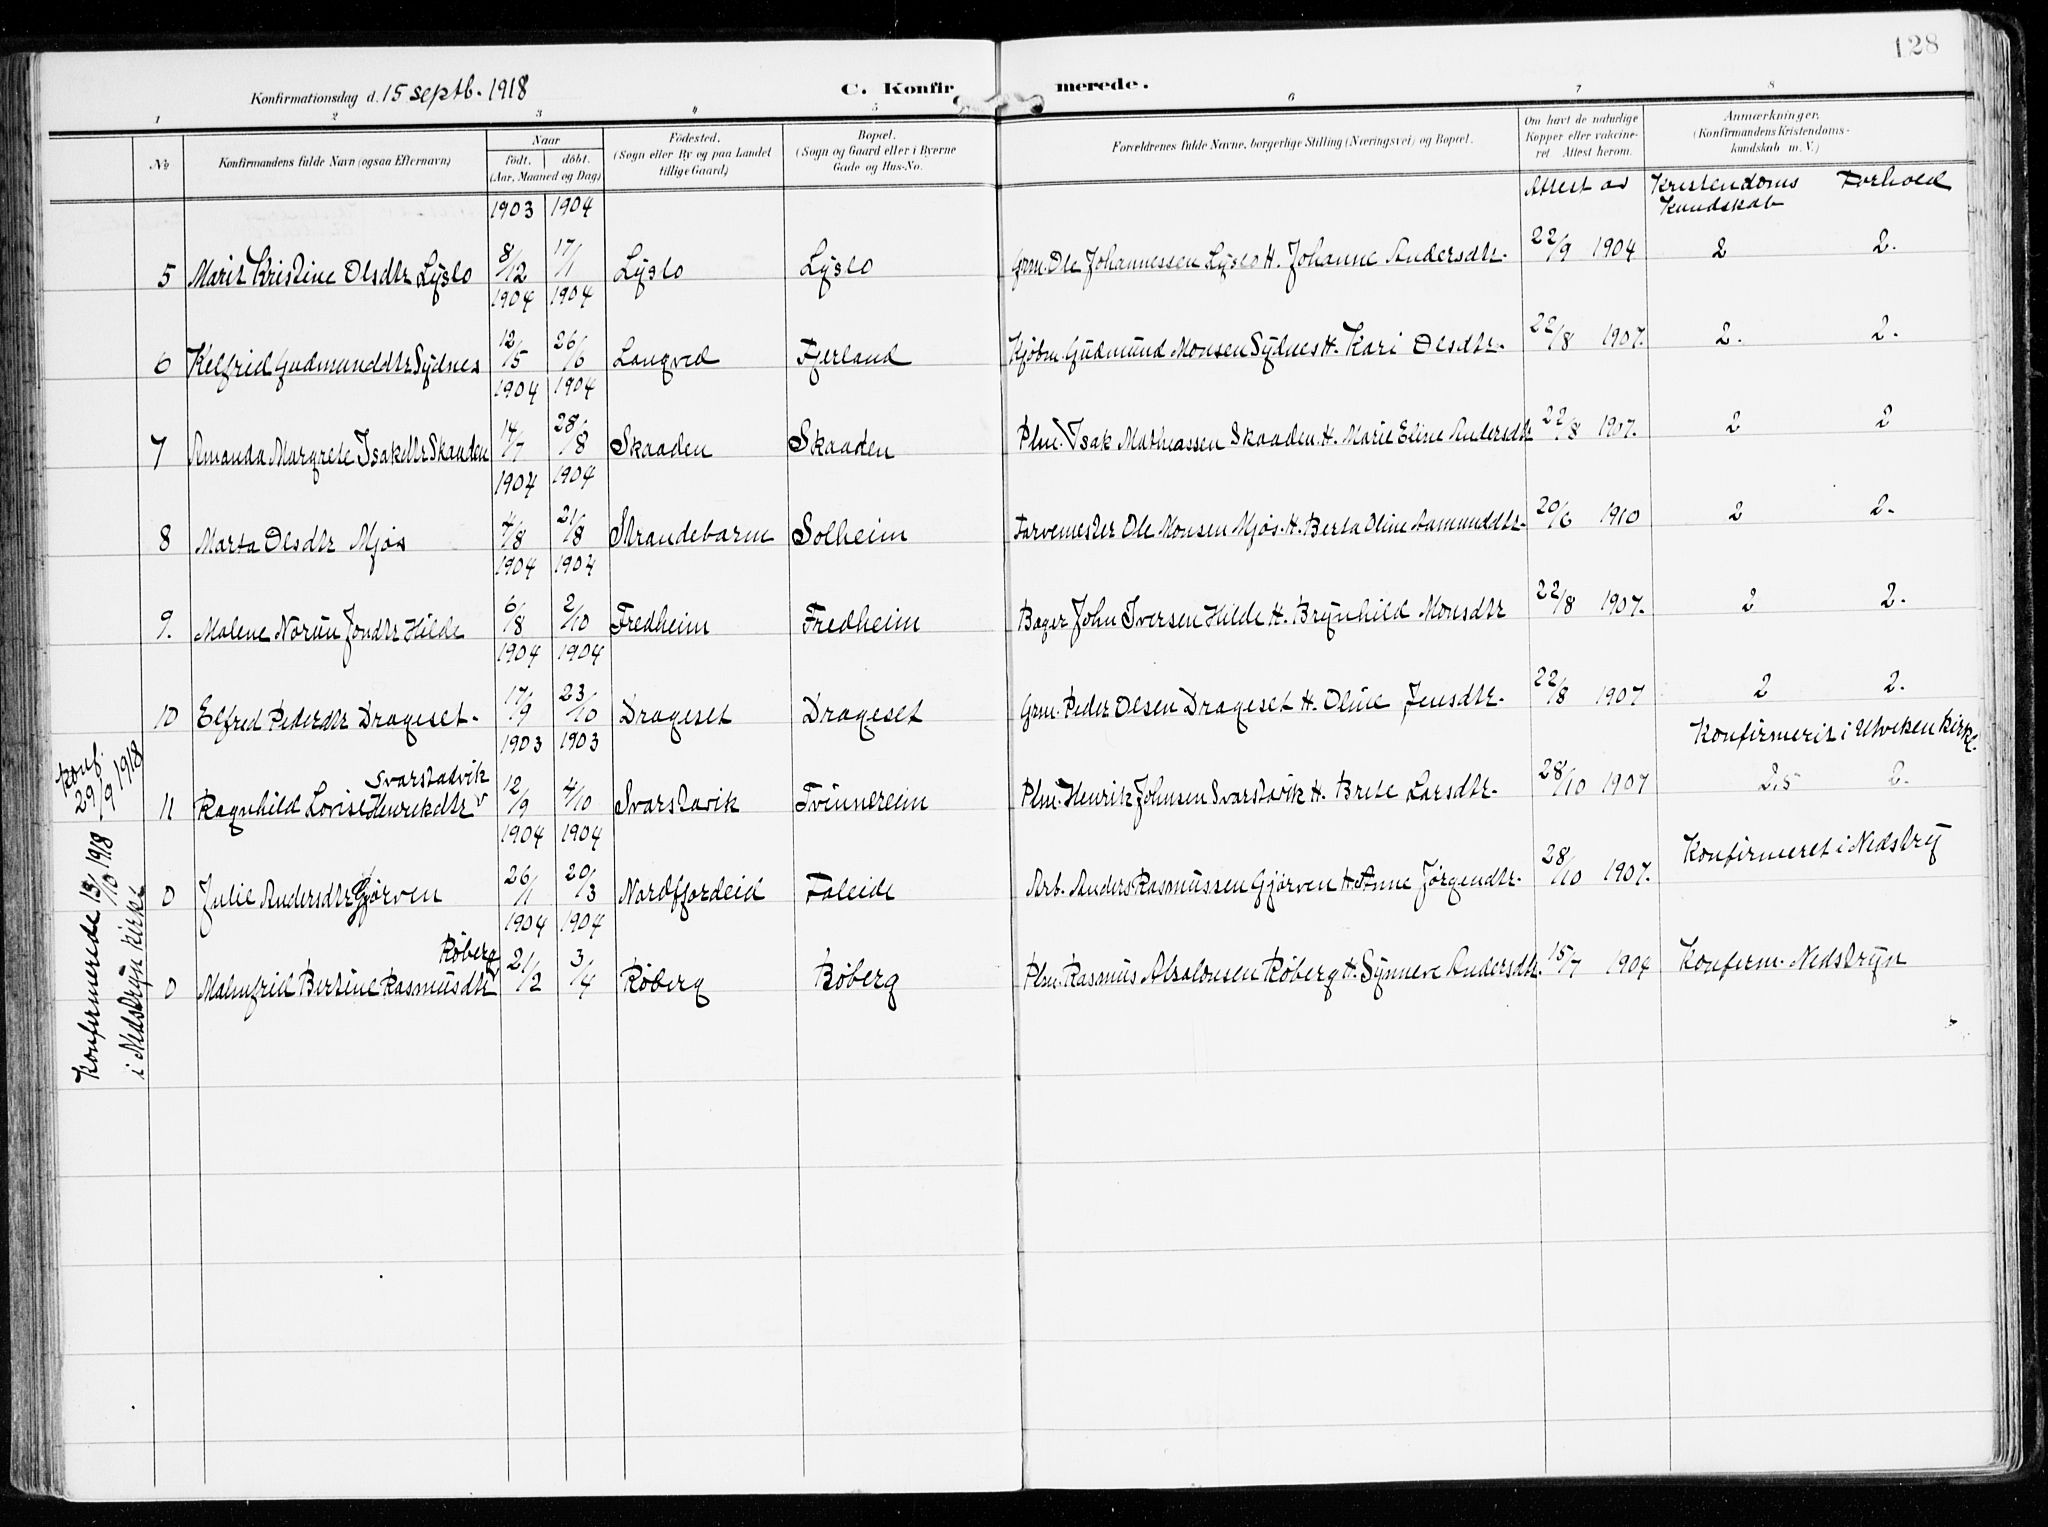 128
Konfirmationsdag d. 15 septb. 1918 C. Konfirmerede.
1 2 3 4 5 6 7 8
No Konfirmandens fulde Navn (ogsaa Efternavn) Naar født. døbt. (Aar, Maaned og Dag) Fødested. (Sogn eller By og paa Landet tillige Gaard) Bopæl. (Sogn og Gaard eller i Byerne Gade og Hus-No. Forældrenes fulde Navne, borgerlige Stilling (Næringsvei) og Bopæl. Om havt de naturlige Kopper eller vaccineret. Attest herom. Anmærkninger. (Konfirmandens Kristendomskundskab m. V.)
Attest av Kristendoms kundskab Forhold
1903 1904
5 Marit Kristine Olsdtr Lyslo 8/12 17/1 Lyslo Lyslo Grm. Ole Johannessen Lyslo H. Johanne Andersdtr. 22/9 1904 2 2.
1904 1904
6 Kelfrid Gudmunddtr Sydnes 12/5 26/6 Langved Fjerland Kjøbm. Gudmund Monsen Sydnes H. Kari Olsdtr. 22/8 1907. 2. 2.
1904 1904
7 Amanda Margrete Isakdtr Skaaden 14/7 28/8 Skaaden Skaaden Plm. Isak Mathiassen Skaaden H. Marie Eline Andersdtr 22/8 1907. 2 2
1904 1904
8 Marta Olsdtr Mjøs 4/8 21/8 Strandebarm Solheim Farvemester Ole Monsen Mjøs. H. Berta Oline Aamunddtr. 20/6 1910 2 2.
1904 1904
9. Malene Norun Jondtr Hilde 6/8 2/10 Fredheim Fredheim Bager John Iversen Hilde H. Brynhild Monsdtr 22/8 1907. 2 2.
1904 1904
10 Elfred Pederdtr Drageset. 17/9 23/10 Drageset Drageset Grm. Peder Olsen Drageset H. Oline Jensdtr. 22/8 1907 2 2.
1903 1903
Konfirmerit i Utviken kirke.
konf. 29/9 1918
Svarstadvik
11 Ragnhild Lovise Henrikdtr v 12/9 4/10 Svarstavik Tvinnereim Plm. Henrik Johnsen Svarstavik H. Brete Larsdtr. 28/10 1907 2,5 2.
1904 1904
Konfirmeret i Nedstry
Konfirmerede 13/10 1918
i Nedstryn kirke
0 Julie Andersdtr Gjørven 26/1 20/3 Nordfjordeid Faleide Arb. Anders Rasmussen Gjørven H. Anne Jørgendtr. 28/10 1907.
1904 1904
Røberg
0 Malmfrid Bertine Rasmusdtr 21/2 3/4 Røberg Røberg Plm. Rasmus Absalonsen Røberg H. Synneve Andersdtr. 15/7 1904 Konferm. Nedstryn